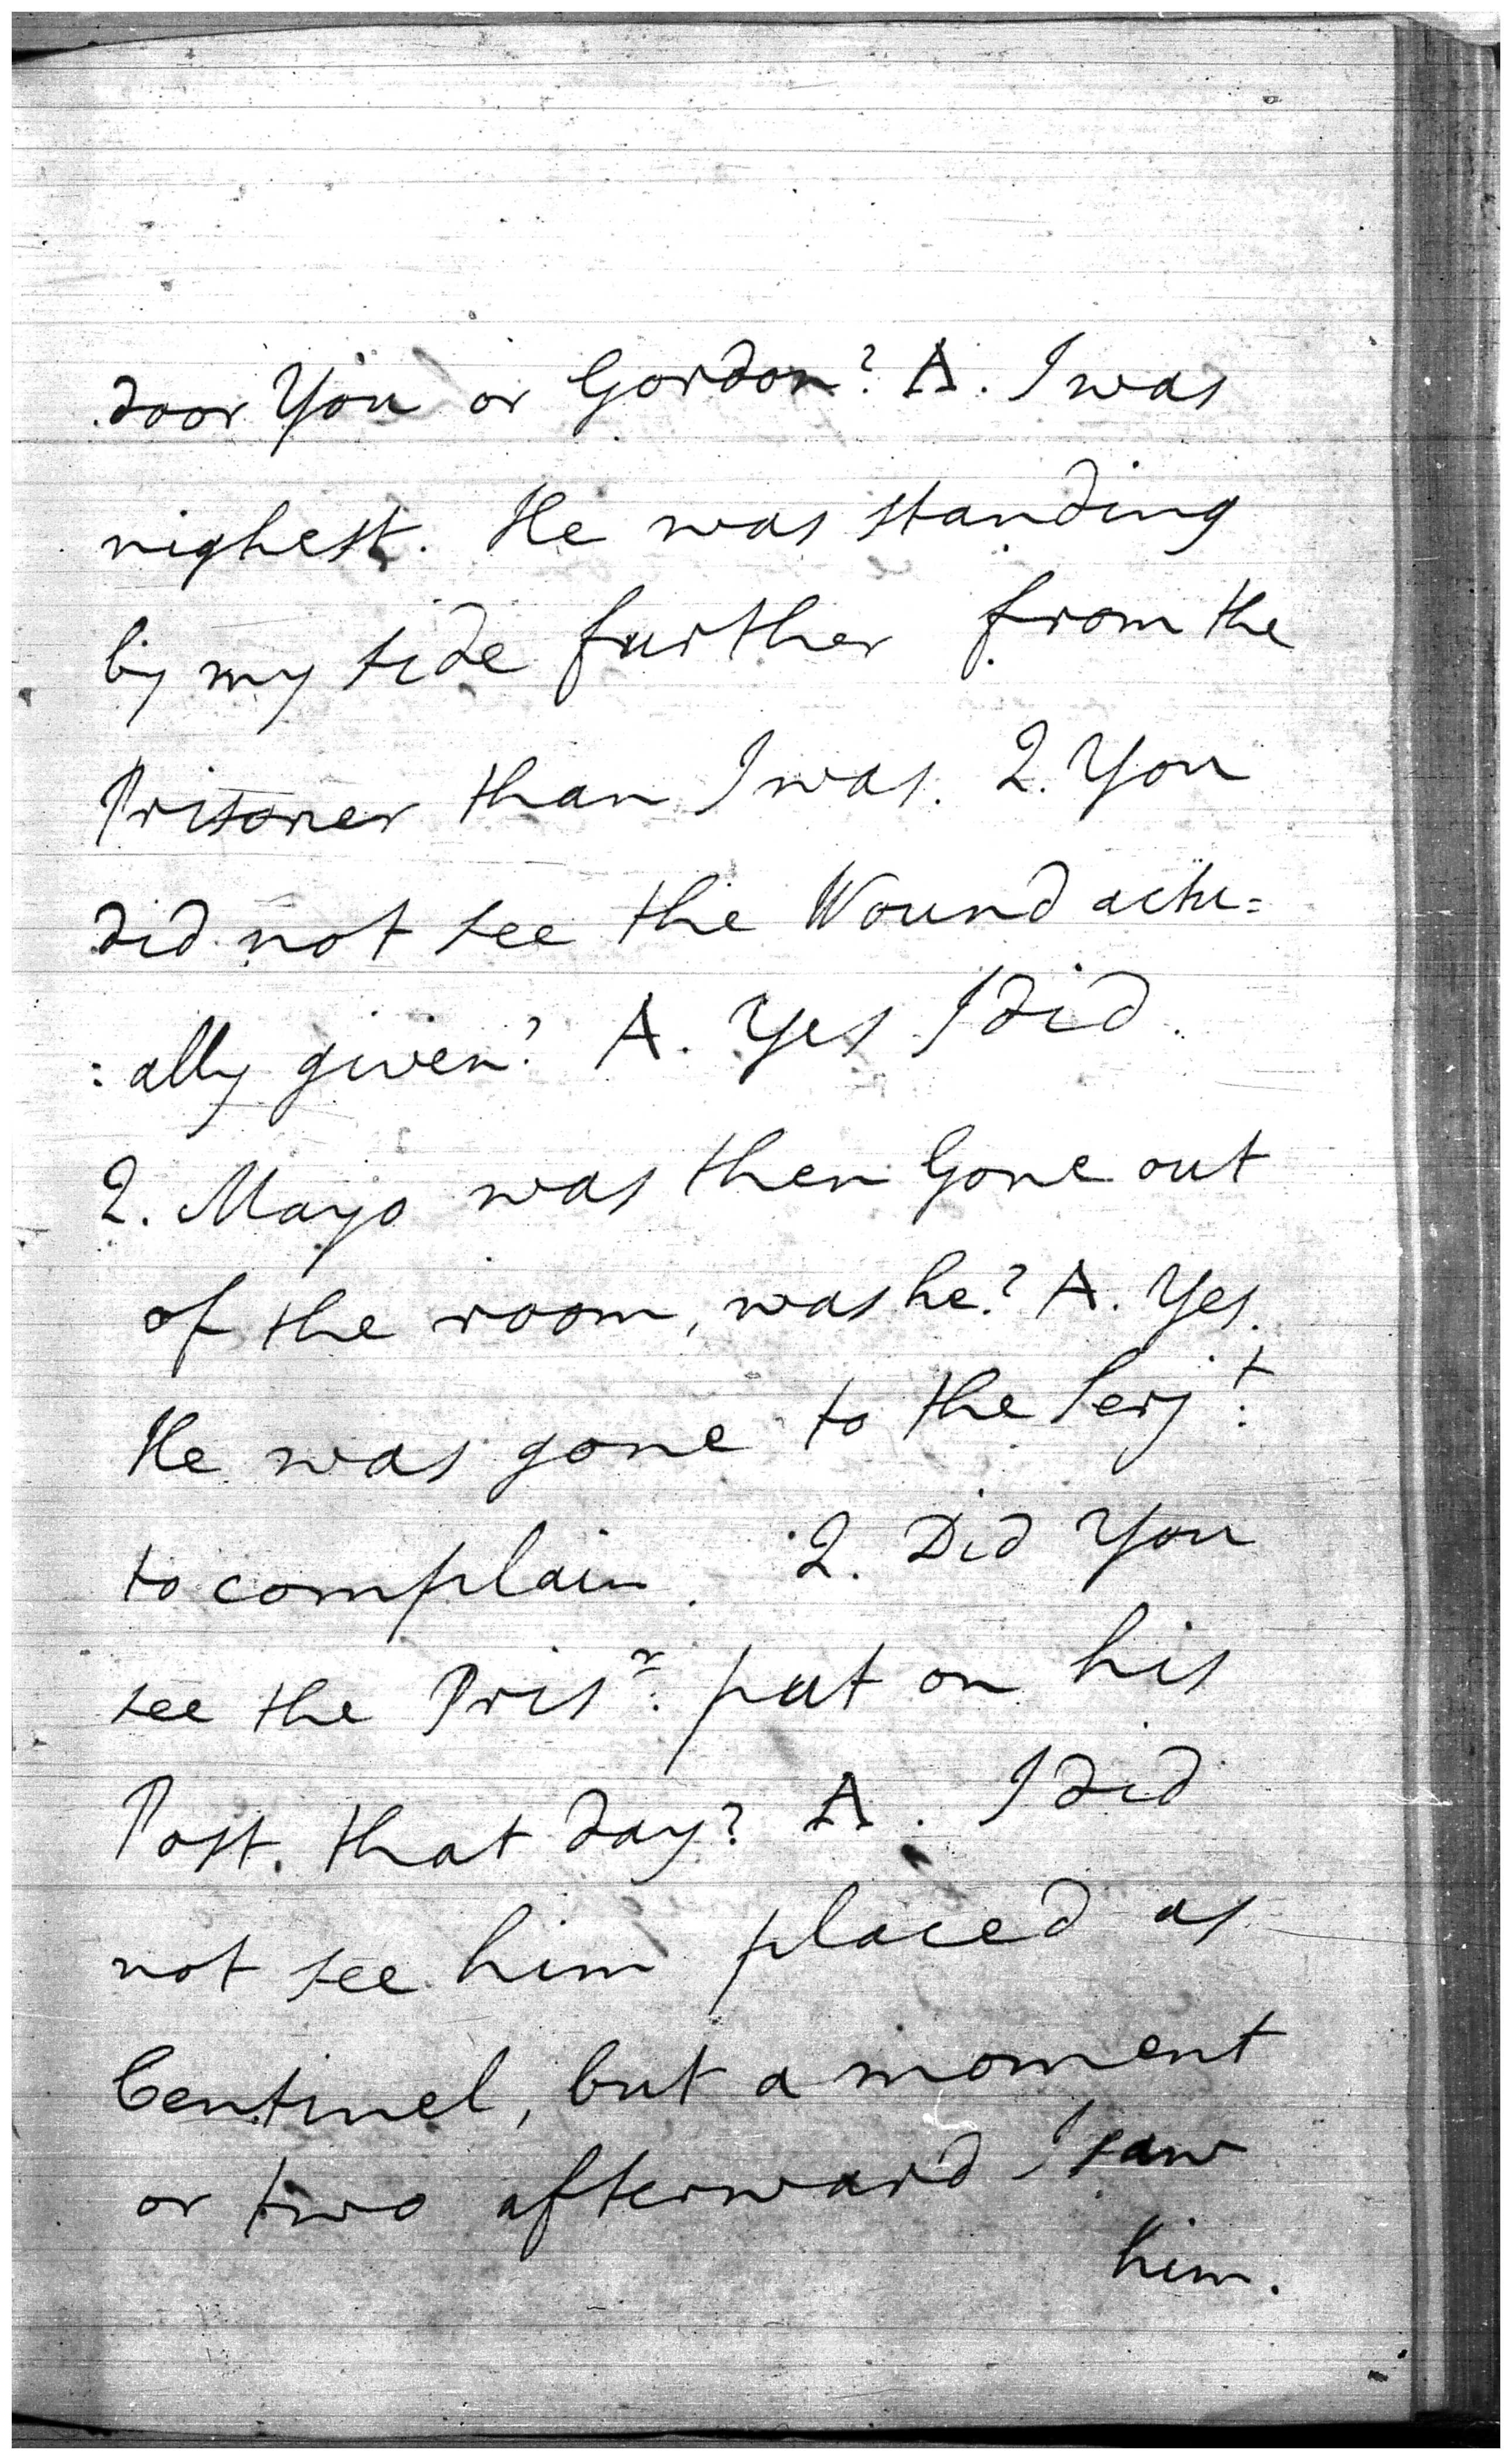 door You or Gordon? A. I was
nighest. He was standing
by my side further from the
Prisoner than I was. Q. You
did not see the Wound actu=
:ally given? A. Yes I did.
Q. Mayo was then Gone out
of the room, was he? A. Yes.
He was gone to the Serjt.
to complain. Q. Did You
see the Prisr. put on his
Post. that day? A. I did
not see him placed as
Centinel, but a moment
or two afterward I saw
him.